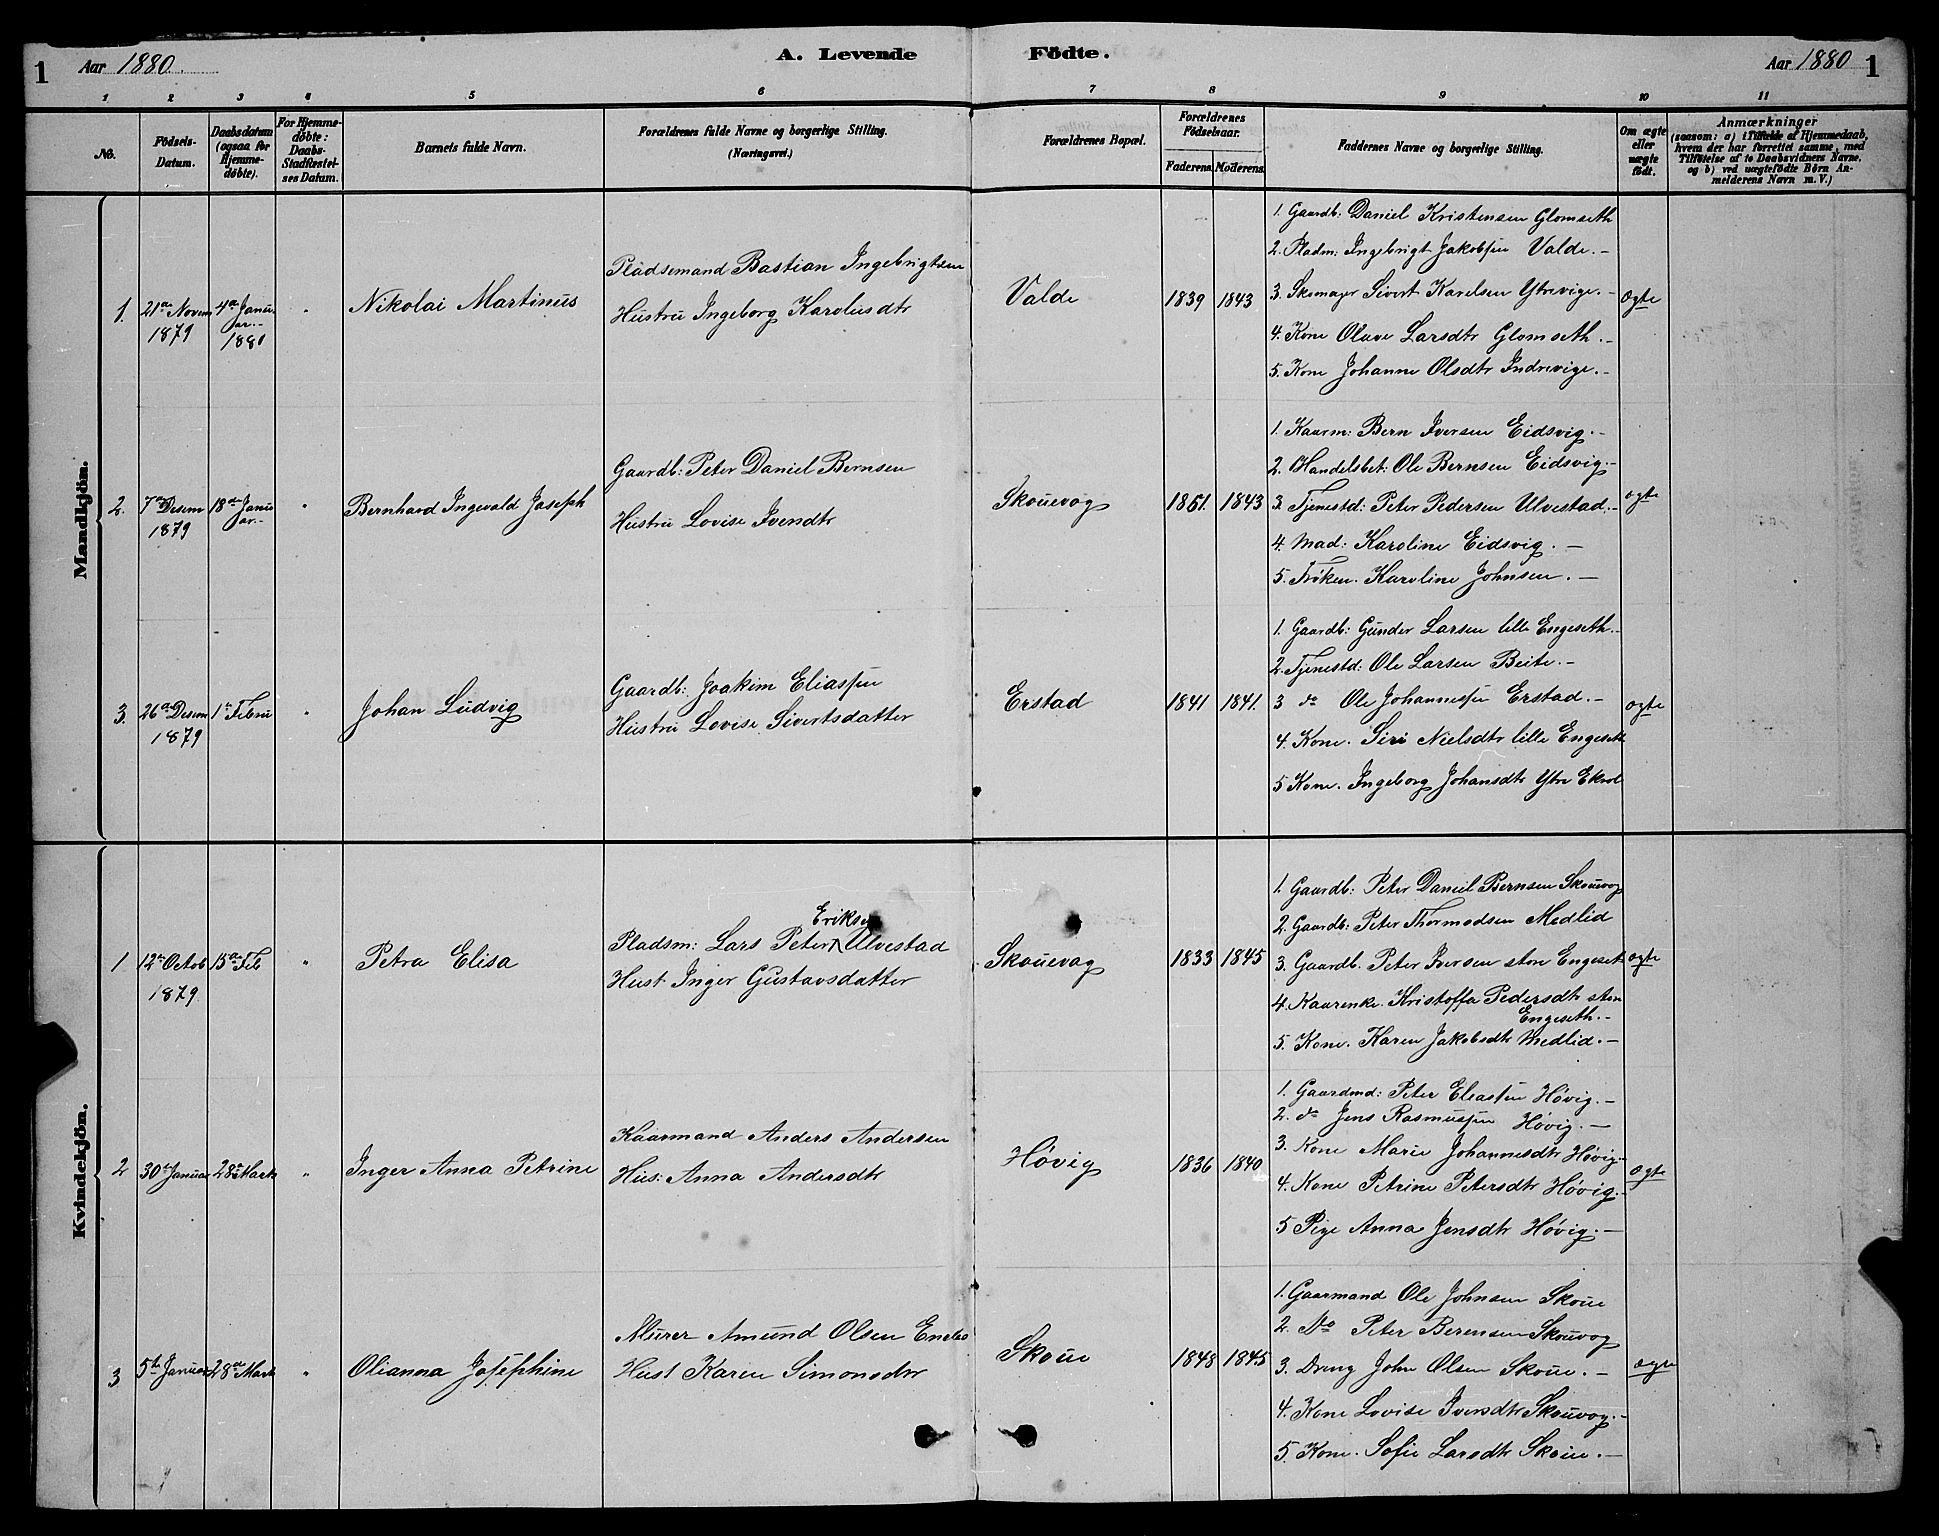 1 Aar 1880. A. Levende Födte. Aar 1880 1
1 2 3 4 5 6 7 8 9 10 11
No.
Födsels-
Datum.
Daabsdatum
(ogsaa for
Hjemme-
döbte).
For Hjemme-
döbte:
Daabs-
Stadfæstel-
ses Datum.
Barnets fulde Navn.
Forældrenes fulde Navne og borgerlige Stilling.
(Næringsvei.)
Forældrenes Bopæl.
Forældrenes
Födselsaar.
Faderens. Moderens.
Faddernes Navne og borgerlige Stilling.
Om ægte
eller
uægte
födt.
Anmærkninger
(saasom: a) i Tilfælde af Hjemmedaab,
hvem der har forrettet samme, med
Tilföielse af to Daabsvidners Navne,
og b) ved uægtefödte Börn An-
melderens Navn m. V.)
Mandkjön.
1.
21de Novem
1879
4de Janu-
ar.-
1880
"
Nikolai Martinus
Pladsemand Bastian Ingebrigtsen
Hustru Ingeborg Karolusdtr
Valde
1839 1843
1. Gaardb: Daniel Kristensen Glomseth
2. Pladm: Ingebrigt Jakobsen Valde.-
3. Skomager Sivert Karelsen Ytrevige.-
4. Kone Olave Larsdtr Glomseth.-
5. Kone Johanne Olsdtr Indrevige.-
ægte
2.
7de Desem
1879
18de Janu
ar.-
"
Bernhard Ingevald Joseph
Gaardb: Peter Daniel Bernsen
Hustru Lovise Iversdtr
Skouevog
1851. 1843
1. Kaarm: Bern Iversen Eidsvig.-
2. Handelsbet: Ole Bernsen Eidsvig.-
3. Tjenestd: Peter Pedersen Ulvestad.-
4. Mad: Karoline Eidsvig.-
5. Frøken. Karoline Johnsen.-
ægte
3.
26de Desem
1879
1ste Febru
"
Johan Ludvig
Gaardb: Joakim Eliassen
Hustru Lovise Sivertsdatter
Erstad
1841 1841.
1. Gaardb: Gunder Larsen lille Engeseth.-
2. Tjenestd: Ole Larsen Beite.-
3 do Ole Johannessen Erstad.-
4. Kone. Siri Nielsdtr lille Engeseth
5 Kone. Ingeborg Johansdtr Ytre Ekrol
ægte
Kvindekjön.
1
12te Octob
1879.
15de Feb
"
Petra Elisa
Eriksen
Pladsm: Lars Peter Ulvestad
Hust Inger Gustavsdatter
Skouevog
1833 1845
1. Gaardb: Peter Daniel Bernsen Skouevog
2. Gaardb: Peter Thormodsen Medlid
3. Gaardb. Peter Iversen store Engeset
4. Kaarenke. Kristoffa Pedersdtr store
Engeseth.-
5. Kone. Karen Jakobsdtr Medlid.-
ægte
2
30te Januar
28de Marts
"
Inger Anna Petrine
Kaarmand Anders Andersen
Hus: Anna Andersdtr
Høvig
1836 1840
1. Gaardmd: Peter Eliassen Høvig.-
2. do Jens Rasmussen Høvig.-
3. Kone Marie Johannesdtr Høvig.-
4. Kone Petrine Petersdtr Høvig.-
5 Pige Anna Jensdtr Høvig.-
ægte
3
5te Januar
28de Marts
"
Olianna Josephine
Murer Amund Olsen
Hust Karen Simonsdtr
Skoue
1848 1845
1. Gaarmand Ole Johnsen Skoue
2. Do Peter Berensen Skouvog
3. Dreng John Olsen Skoue.-
4. Kone Lovise Iversdtr Skouvog.-
5. Kone. Sofie Larsdtr Skoue.-
ægte